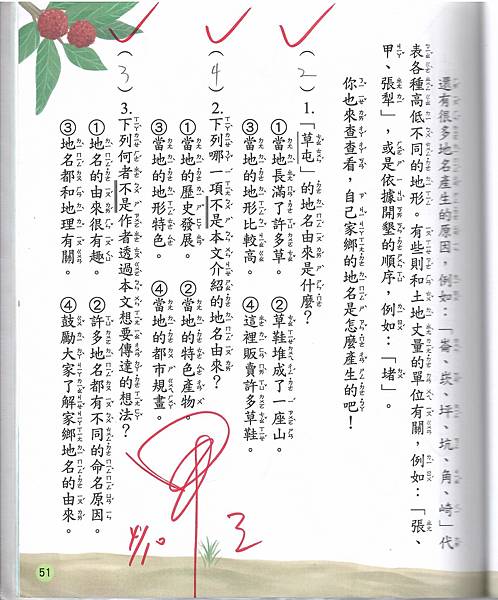 還有很多地名產生的原因，例如：「崙、崁、坪、坑、角、崎」代
表各種高低不同的地形。有些則和土地丈量的單位有關，例如：「張、
甲、張犁」，或是依據開墾的順序，例如：「堵」。
你也來查查看，自己家鄉的地名是怎麼產生的吧！
（2）1.「草屯」的地名由來是什麼？
①當地長滿了許多草。 ②草鞋堆成了一座山。
③當地的地形比較高。 ④這裡販賣許多草鞋。
（4）2.下列哪一項不是本文介紹的地名由來？
①當地的歷史發展。 ②當地的特色產物。
③當地的地形特色。 ④當地的都市規畫。
（3）3.下列何者不是作者透過本文想要傳達的想法？
①地名的由來很有趣。 ②許多地名都有不同的命名原因。
③地名都和地理有關。 ④鼓勵大家了解家鄉地名的由來。
51